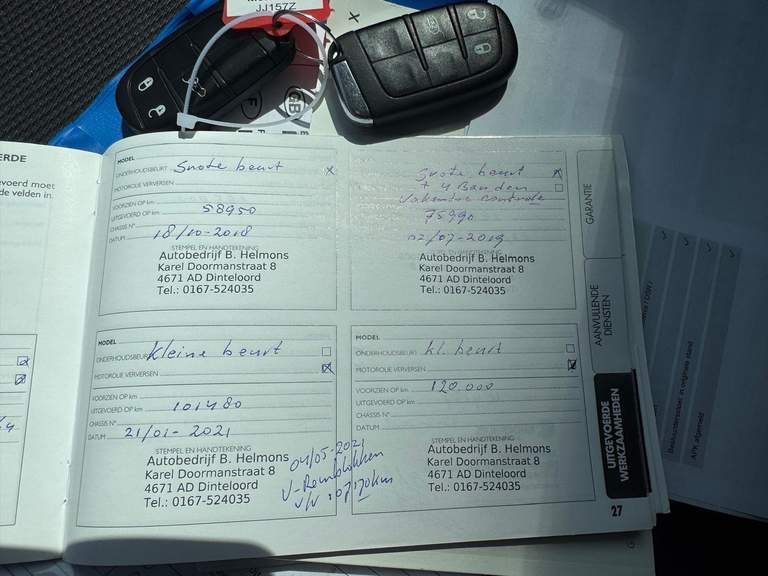 JJ157Z
F
GB
ERDE
evoerd moet
de velden in.
MODEL
ONDERHOUDSBEURT Grote beurt
MOTOROLIE VERVERSEN
VOORZIEN OP km
UITGEVOERD OP km 58950
CHASSIS N°
DATUM 18/10-2018
STEMPEL EN HANDTEKENING
Autobedrijf B. Helmons
Karel Doormanstraat 8
4671 AD Dinteloord
Tel.: 0167-524035
Grote beurt
+ 4 Banden
Vakantie controle
75990
02/07-2019
STEMPEL EN HANDTEKENING
Autobedrijf B. Helmons
Karel Doormanstraat 8
4671 AD Dinteloord
Tel.: 0167-524035
MODEL
ONDERHOUDSBEURT Kleine beurt
MOTOROLIE VERVERSEN
VOORZIEN OP km
UITGEVOERD OP km 101480
CHASSIS N°
DATUM 21/01-2021
STEMPEL EN HANDTEKENING
Autobedrijf B. Helmons
Karel Doormanstraat 8
4671 AD Dinteloord
Tel.: 0167-524035
04/05-2021
V-Remblokken
MODEL
ONDERHOUDSBEURT Kl. beurt
MOTOROLIE VERVERSEN
VOORZIEN OP km 120.000
UITGEVOERD OP km
CHASSIS N°
DATUM
STEMPEL EN HANDTEKENING
Autobedrijf B. Helmons
Karel Doormanstraat 8
4671 AD Dinteloord
Tel.: 0167-524035
GARANTIE
AANVULLENDE
DIENSTEN
UITGEVOERDE
WERKZAAMHEDEN
27